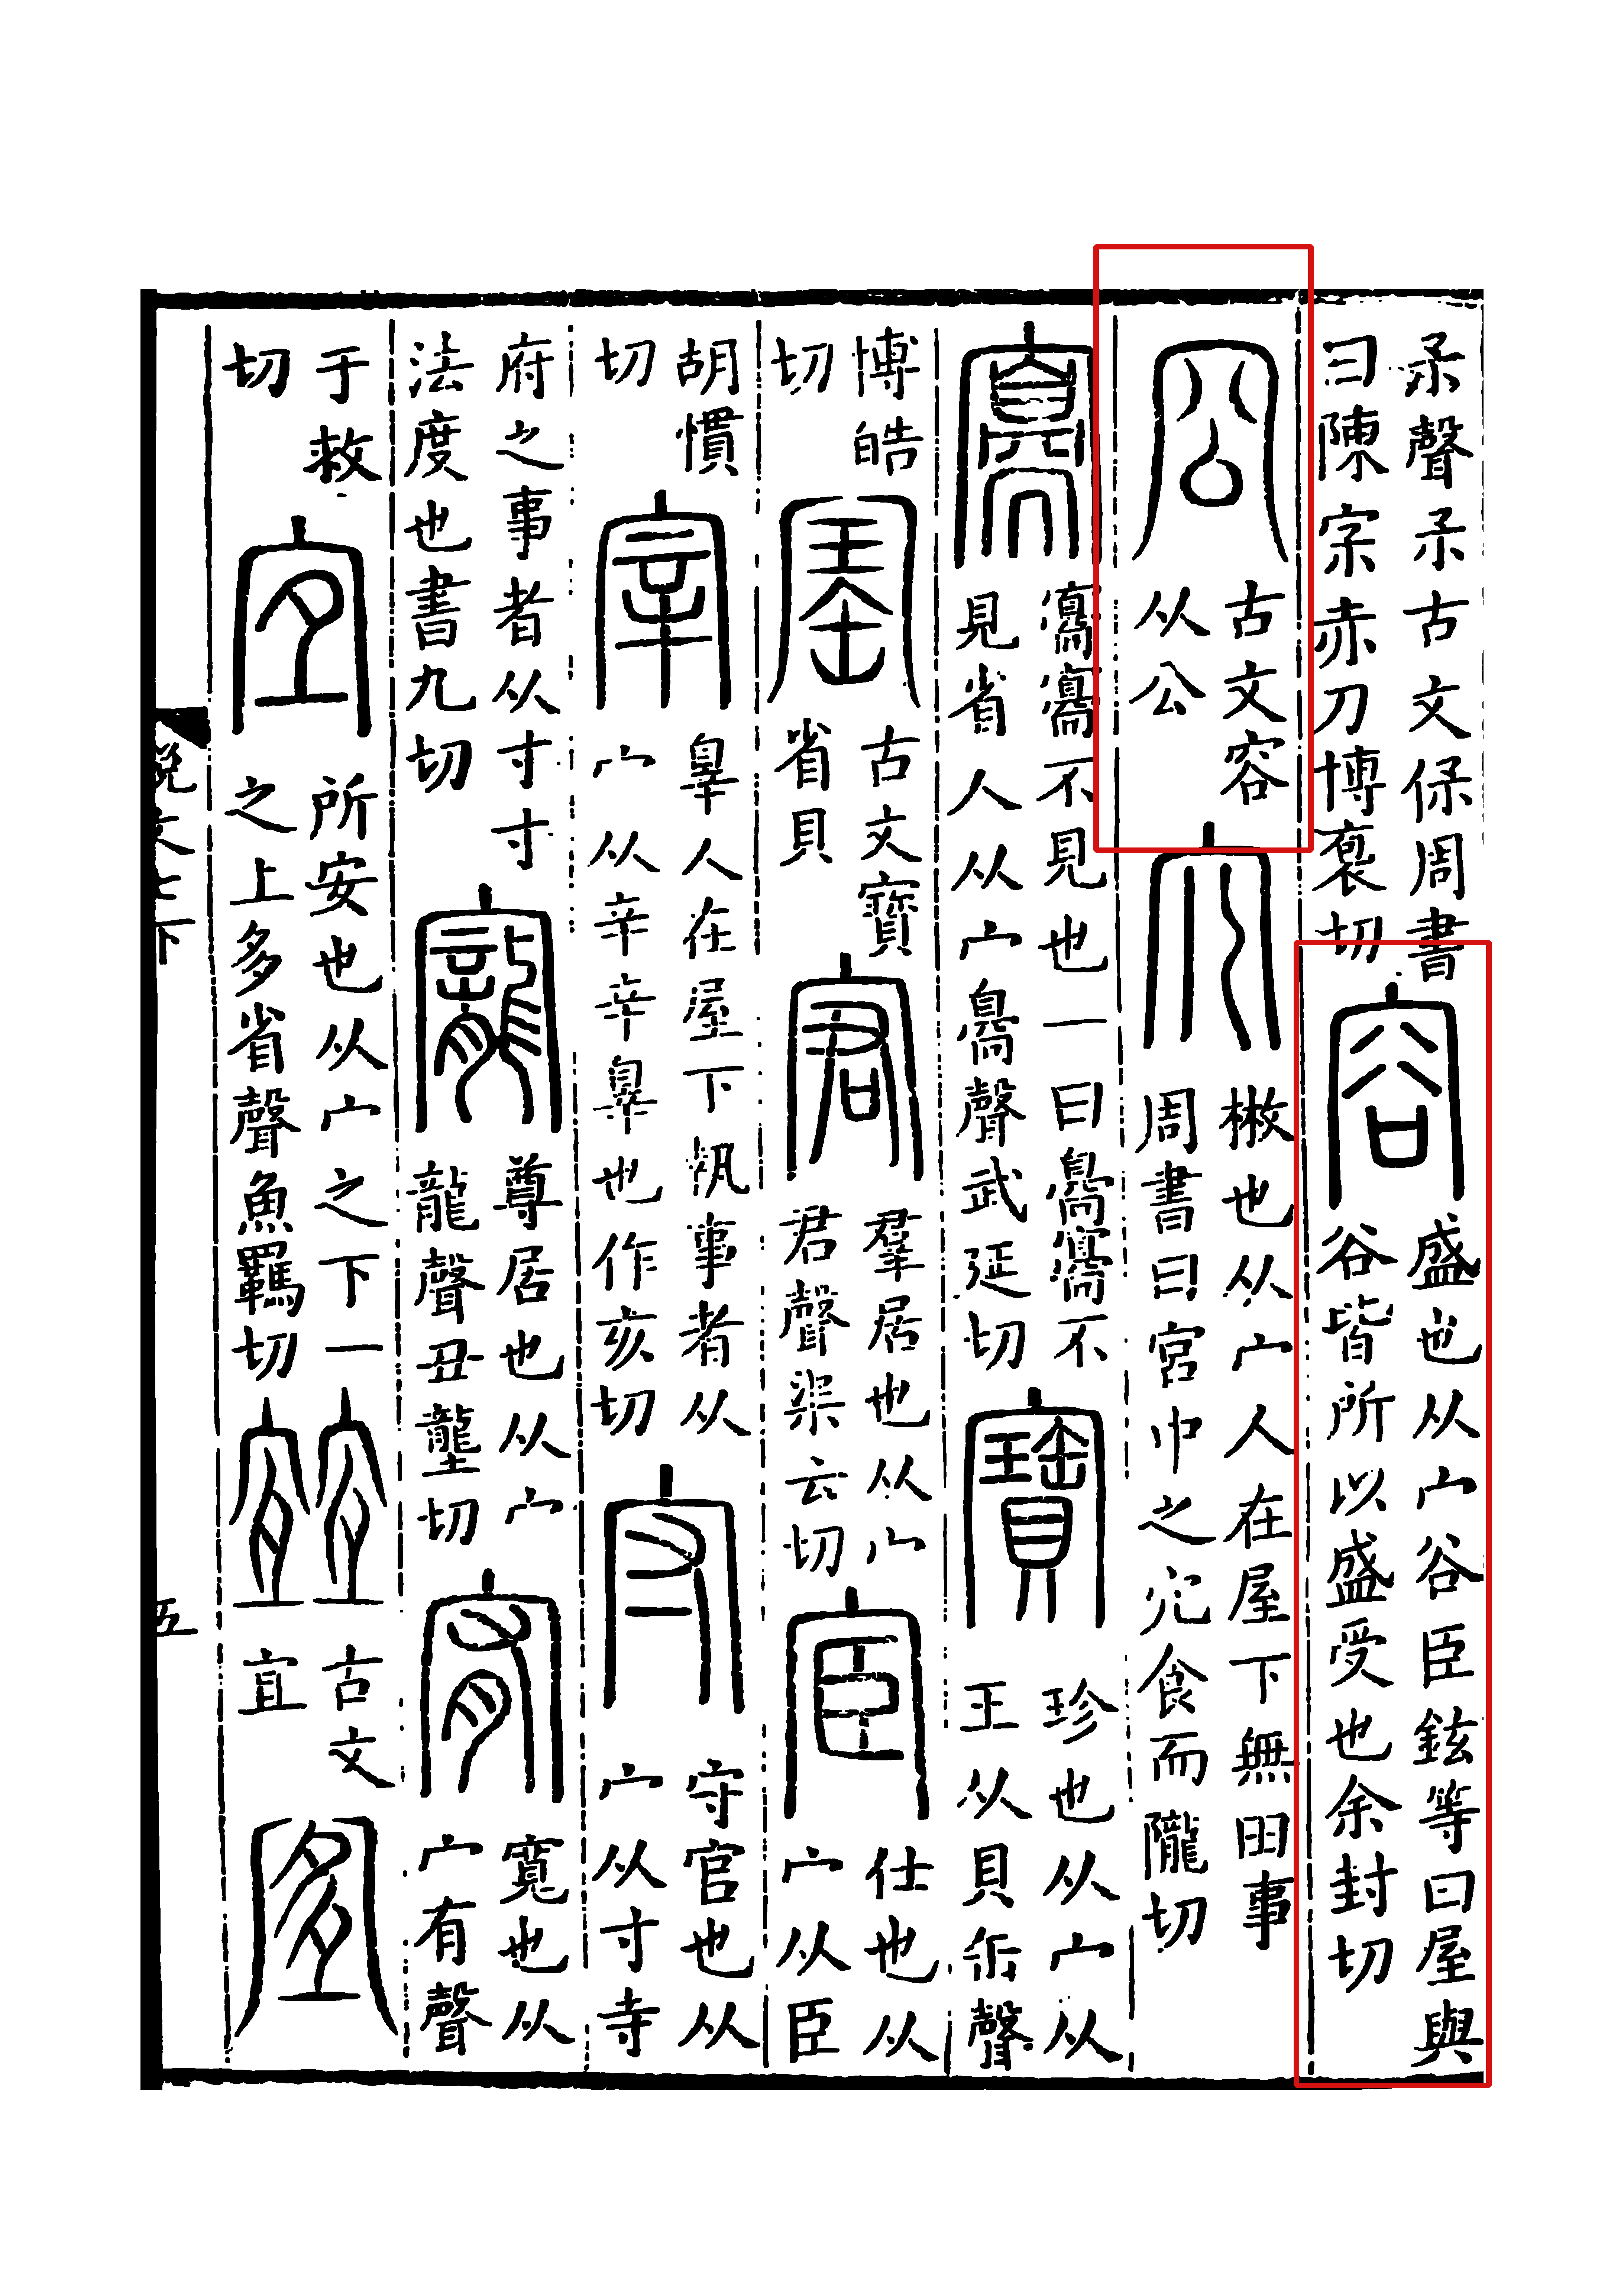 𣎼聲𣎼古文保周書
曰陳宗赤刀博裒切
容
盛也从宀谷臣鉉等曰屋與
谷皆所以盛受也余封切
㝐
古文容
从公
宂
㪔也从宀人在屋下無田事
周書曰宮中之宂食而隴切
㝰
㝰㝰不見也一曰臱㝰不
見省人从宀臱聲武延切
寶
珍也从宀从
王从貝缶聲
博皓
切
寚
古文寶
省貝
宭
羣居也从宀
君聲渠云切
宦
仕也从
宀从臣
胡慣
切
宰
辠人在屋下執事者从
宀从辛辛辠也作亥切
守
守官也从
宀从寸寺
府之事者从寸寸
法度也書九切
寵
尊居也从宀
龍聲丑壟切
宥
寬也从
宀有聲
于救
切
宜
所安也从宀之下一
之上多省聲魚羈切
古文
宜
說文七下
五